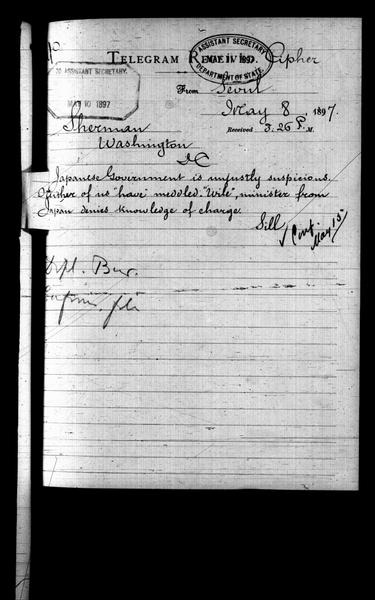 Telegram Received. Cipher
ASSISTANT SECRETARY
MAY 10 1897
DEPARTMENT OF STATE.
ASSISTANT SECRETARY.
MAY 10 1897
From Seoul
May 8, 1897.
Received 3.26 P. M.
Sherman
Washington
Japanese Government is unjustly suspicious.
Neither of us "have" meddled. "Wile", minister from
Japan denies knowledge of charge.
Sill
Conf.
May 15
Dipl. Bur.